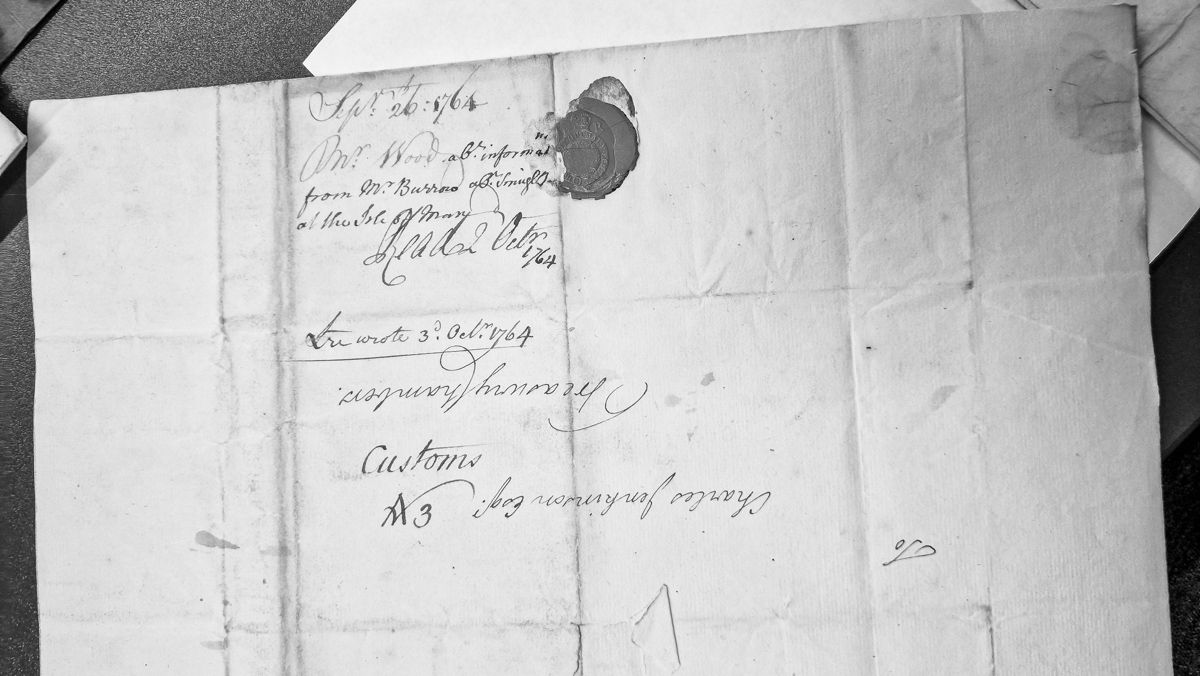 Sepr. 26th: 1764
Mr. Wood abt. informatn
from Mr. Burrow abt. Smuglg
at the Isle of Man
Read 2 Octr.
1764
Lre wrote 3d. Octr. 1764
Treasury Chambers.
Customs
Charles Jenkinson Esqr.
3
To